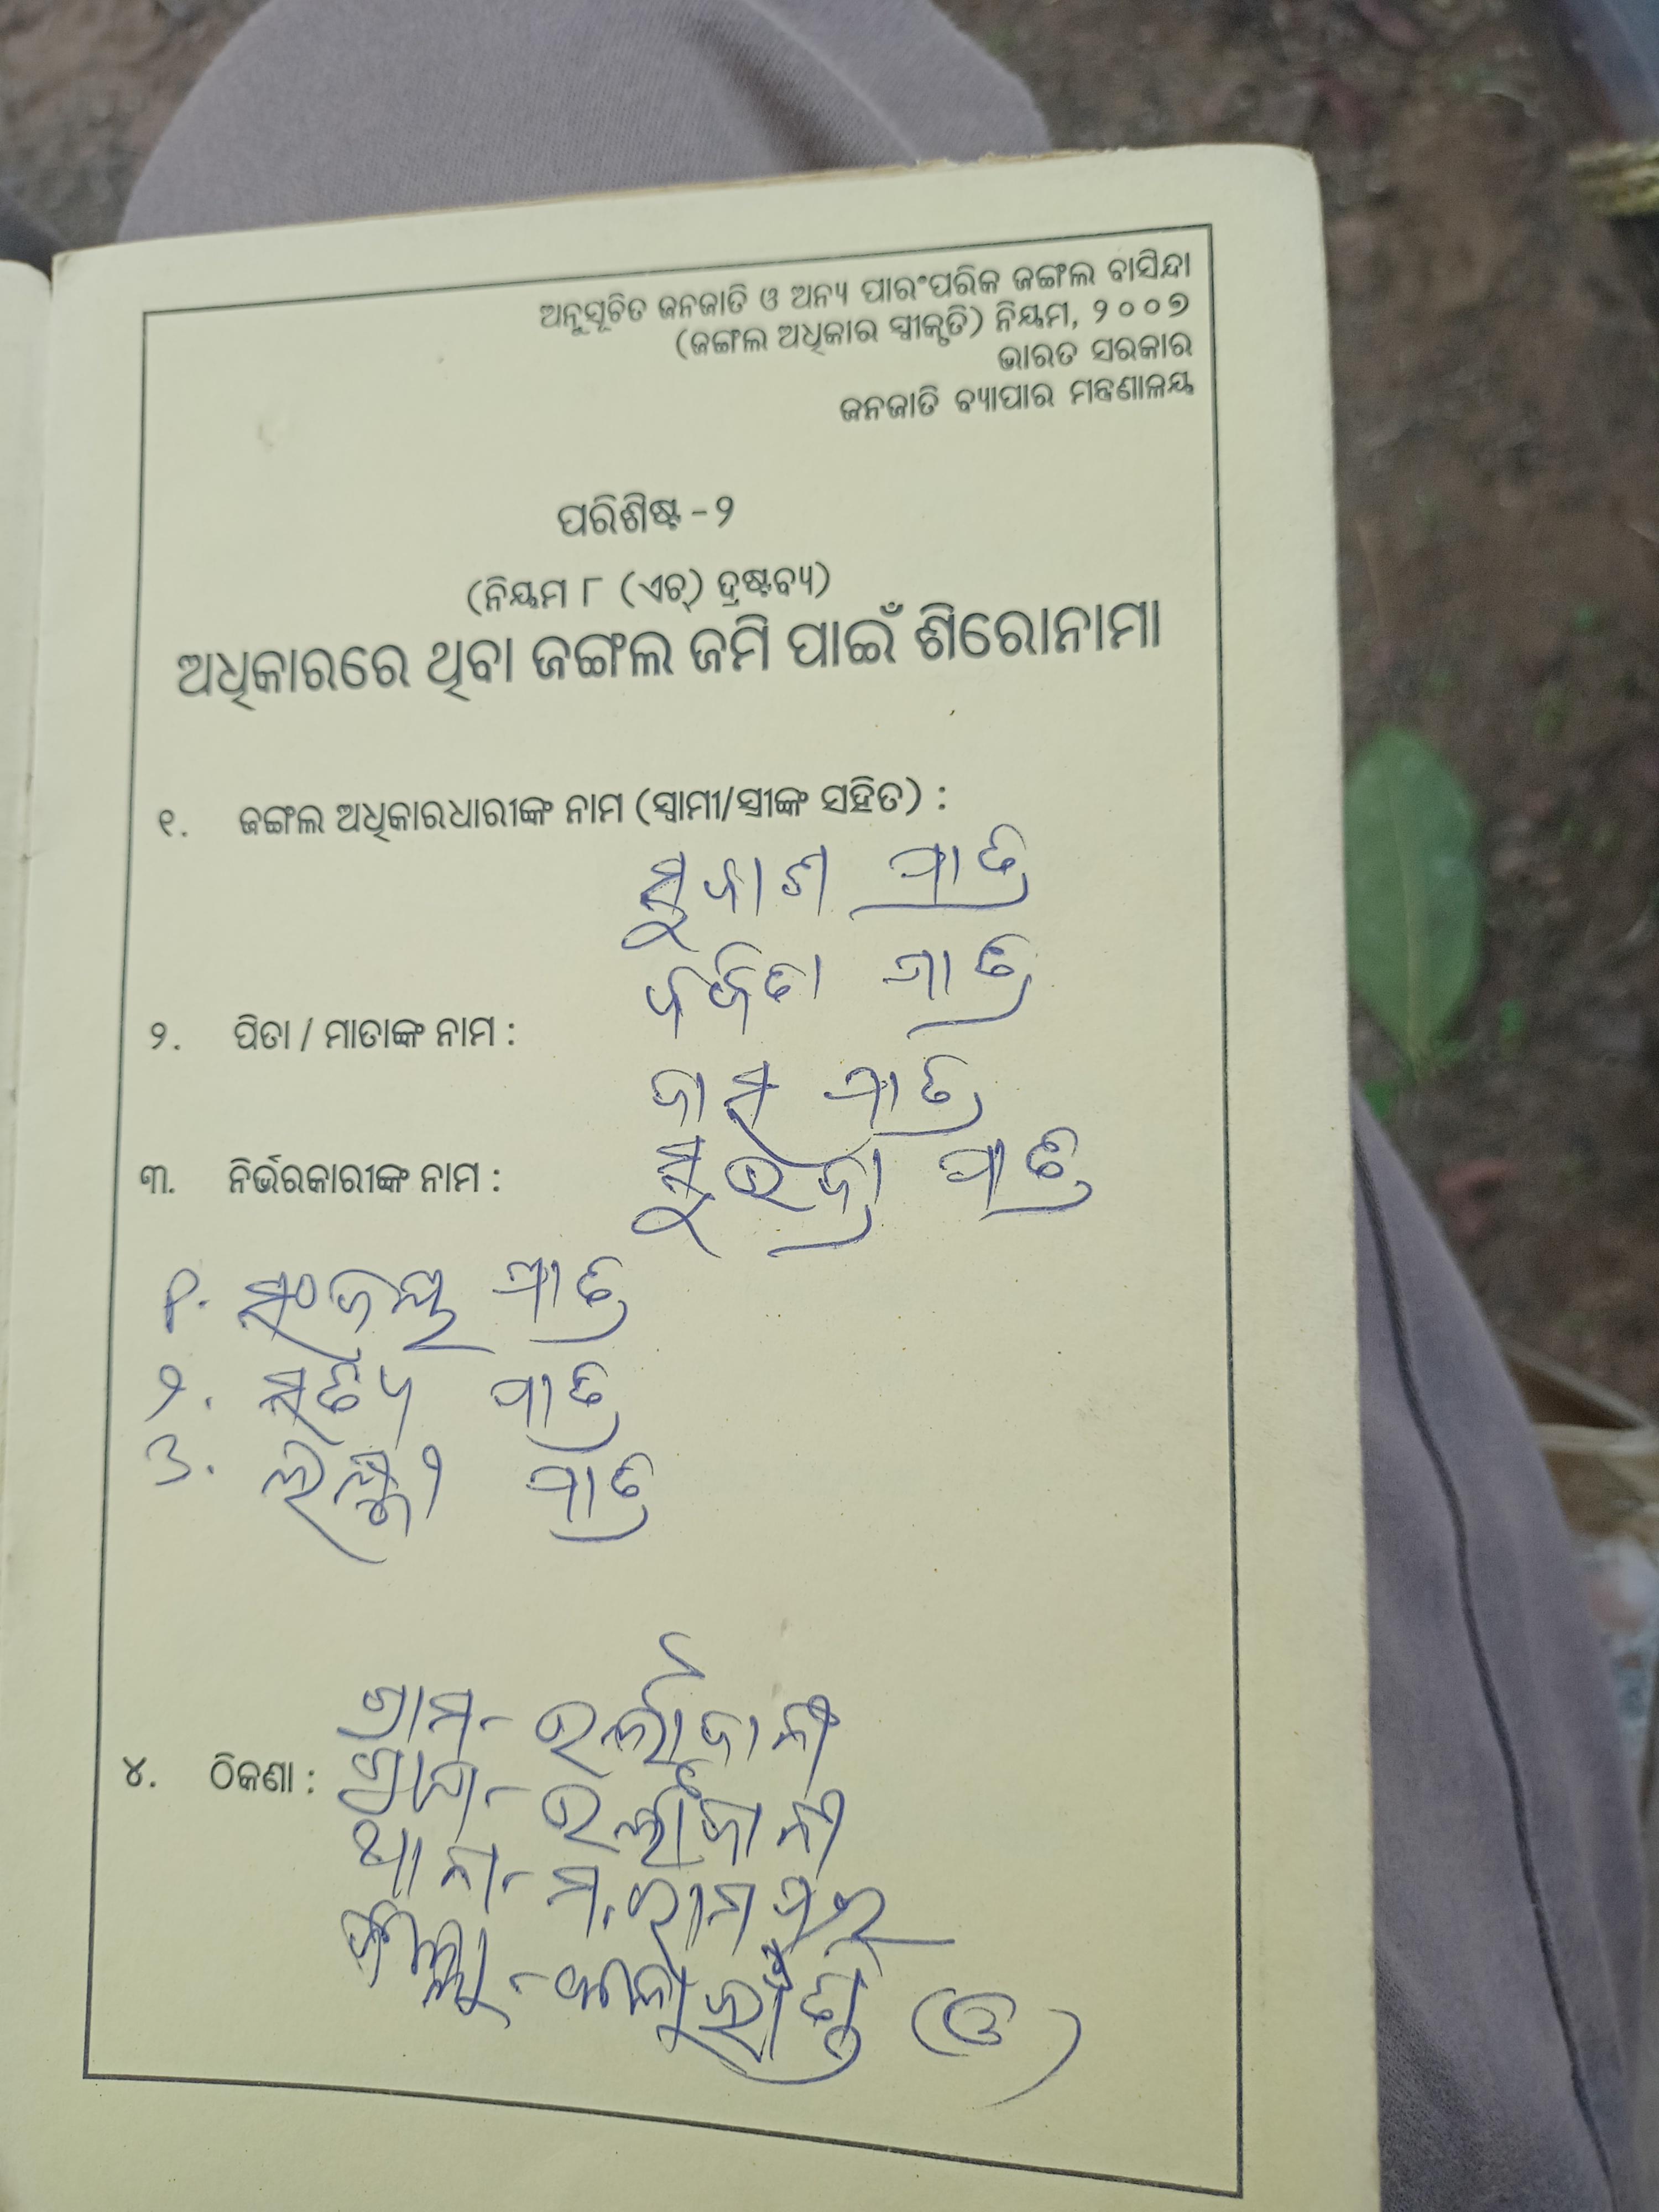 ଅନୁସୂଚିତ ଜନଜାତି ଓ ଅନ୍ୟ ପାରଂପରିକ ଜଙ୍ଗଲ ବାସିନ୍ଦା
(ଜଙ୍ଗଲ ଅଧିକାର ସ୍ୱୀକୃତି) ନିୟମ, ୨୦୦୭
ଭାରତ ସରକାର
ଜନଜାତି ବ୍ୟାପାର ମନ୍ତ୍ରଣାଳୟ
ପରିଶିଷ୍ଟ - ୨
(ନିୟମ ୮ (ଏଚ୍) ଦ୍ରଷ୍ଟବ୍ୟ)
ଅଧିକାରରେ ଥିବା ଜଙ୍ଗଲ ଜମି ପାଇଁ ଶିରୋନାମା
୧. ଜଙ୍ଗଲ ଅଧିକାରଧାରୀଙ୍କ ନାମ (ସ୍ୱାମୀ/ସ୍ତ୍ରୀଙ୍କ ସହିତ) :
ପାତ୍ର
ପାତ୍ର
୨. ପିତା / ମାତାଙ୍କ ନାମ :
ପାତ୍ର
୩. ନିର୍ଭରକାରୀଙ୍କ ନାମ :
ପାତ୍ର
୧. ସଂଜୟ ପାତ୍ର
୨. ସତ୍ୟ ପାତ୍ର
୩. ଲକ୍ଷ୍ମୀ ପାତ୍ର
ଗ୍ରାମ-
୪. ଠିକଣା :
ଥାନା- ମ. ରାମପୁର
ଜିଲ୍ଲା - କଳାହାଣ୍ଡି (ଓ)